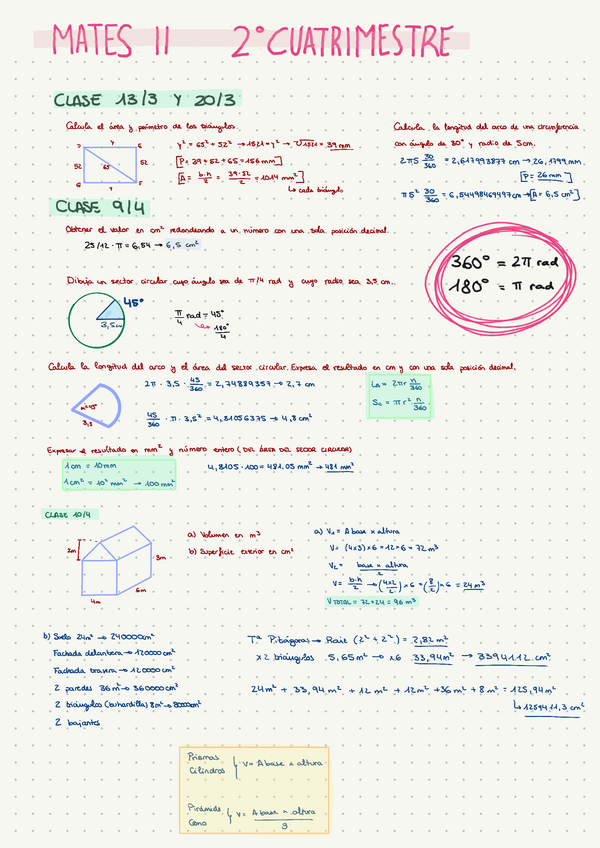 MATES II 2º CUATRIMESTRE
CLASE 13/3 Y 20/3
Calcula el área y perímetro de los triángulos.
y² = 65² + 52² → 1521 = y² → √1521 = 39 mm
[P = 39 + 52 + 65 = 156 mm]
[A = b·h/2 = 39·52/2 = 1014 mm²]
↳ cada triángulo
y
52
65
52
y
Calcula la longitud del arco de una circunferencia
con ángulo de 30º y radio de 5cm.
2π5 30/360 = 2,617993877 cm → 26,1799 mm
[P = 26 mm]
π5² 30/360 = 6,544984694 97 cm → [A = 6,5 cm²]
CLASE 9/4
Obtener el valor en cm² redondeando a un número con una sola posición decimal.
25/12 · π = 6,54 → 6,5 cm²
360º = 2π rad
180º = π rad
Dibuja un sector circular cuyo ángulo sea de π/4 rad y cuyo radio sea 3,5 cm.
45º
3,5cm
π/4 rad = 45º
180º/4
Calcula la longitud del arco y el área del sector circular. Expresa el resultado en cm y con una sola posición decimal.
2π · 3,5 · 45/360 = 2,74889357 → 2,7 cm
45/360 · π · 3,5² = 4,81056375 → 4,8 cm²
n=45º
3,5
La = 2πr n/360
Sc = πr² · n/360
Expresar el resultado en mm² y número entero (DEL ÁREA DEL SECTOR CIRCULAR)
1 cm = 10 mm
1 cm² = 10² mm² → 100 mm²
4,8105 · 100 = 481,05 mm² → 481 mm²
CLASE 10/4
2m
3m
6m
4m
a) Volumen en m³
b) Superficie exterior en cm²
a) V₁ = A base x altura
V = (4x3) x 6 = 12 x 6 = 72 m³
V₂ = base x altura / 2
V = b·h/2 → (4x2/2) x 6 = (8/2) x 6 = 24 m³
V TOTAL = 72 + 24 = 96 m³
b) Suelo 24m² → 240000cm²
Fachada delantera → 120000 cm²
Fachada trasera → 120000 cm²
2 paredes 36 m² → 360000 cm²
2 triángulos (buhardilla) 8m² → 80000cm²
2 bajantes
Tª Pitágoras → Raiz (2² + 2²) = 2,82 m²
x2 triángulos 5,65m² → x6 33,94m² → 339411,2 cm²
24m² + 33,94 m² + 12 m² + 12m² + 36 m² + 8 m² = 125,94m²
↳ 1259411,3 cm²
Prismas
Cilindros
V = A base x altura
Pirámide
Cono
V = A base x altura / 3